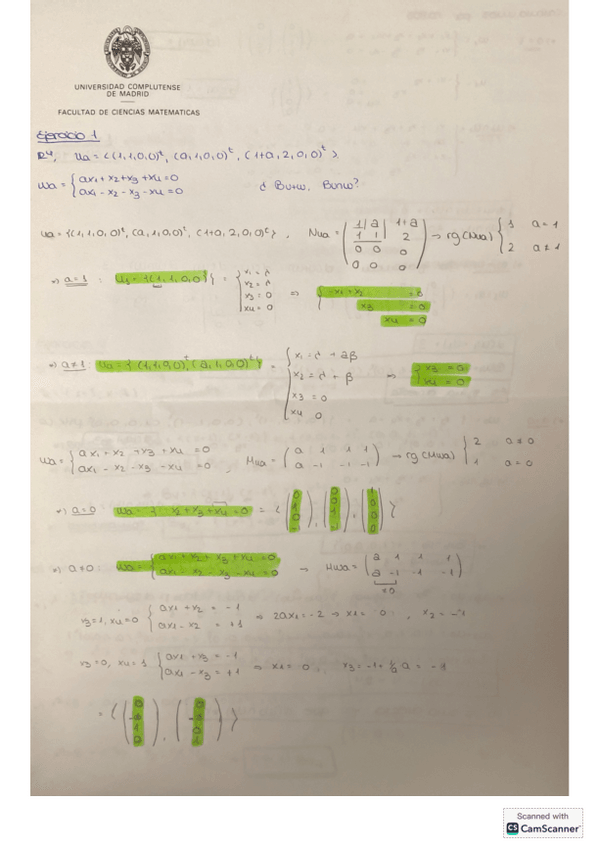 UNIVERSIDAD COMPLUTENSE
DE MADRID
FACULTAD DE CIENCIAS MATEMATICAS
Ejercicio 1
R4, Ua = <(1,1,0,0)^t, (a,1,0,0)^t, (1+a,2,0,0)^t>.
Wa = { ax1 + x2 + x3 + x4 = 0
ax1 - x2 - x3 - x4 = 0
¿ Bu+w, Bu∩w?
Ua = {(1,1,0,0)^t, (a,1,0,0)^t, (1+a,2,0,0)^t}, Mua = ( 1 a 1+a
1 1 2
0 0 0
0 0 0 ) → rg(Mua) { 1 a = 1
2 a ≠ 1
*) a=1 : U1 = {(1,1,0,0)^t} = { x1 = λ
x2 = λ
x3 = 0
x4 = 0 ⇒ { -x1 + x2 = 0
x3 = 0
x4 = 0
*) a≠1: Ua = {(1,1,0,0)^t, (a,1,0,0)^t} = { x1 = λ + aβ
x2 = λ + β
x3 = 0
x4 0 ⇒ { x3 = 0
x4 = 0
Wa = { ax1 + x2 + x3 + x4 = 0
ax1 - x2 - x3 - x4 = 0 , Mwa = ( a 1 1 1
a -1 -1 -1 ) → rg(Mwa) { 2 a ≠ 0
1 a = 0
*) a=0 x2 + x3 + x4 = 0
*) a≠0: Wa = { ax1 + x2 + x3 + x4 = 0
ax1 - x2 - x3 - x4 = 0 → Mwa = ( a 1 1 1
a -1 -1 -1 )
≠0
x3=1, x4=0 { ax1 + x2 = -1
ax1 - x2 = +1 ⇒ 2ax1 = -2 → x1 = 0 , x2 = -1
x3=0, x4=1 { ax1 + x3 = -1
ax1 - x3 = +1 ⇒ x1 = 0 ,
Scanned with
CS CamScanner